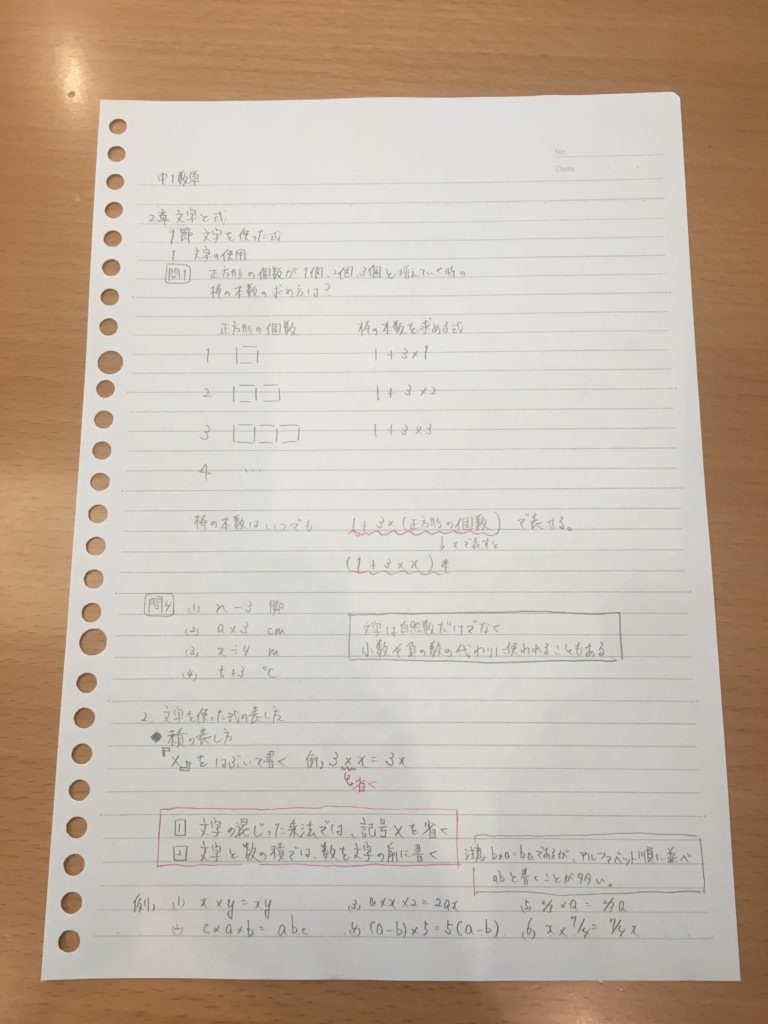 No
Date
中1数学
2章 文字と式
1節 文字を使った式
1 文字の使用
問1 正方形の個数が1個、2個、3個と増えていく時の
棒の本数の求め方は？
正方形の個数 棒の本数を求める式
1 1+3×1
2 1+3×2
3 1+3×3
4 …
棒の本数はいつでも 1+3×(正方形の個数) で表せる。
↓xで表すと
(1+3×x)本
(1) n-3 脚
(2) a×3 cm
(3) x÷4 m
(4) t+3 ℃
文字は自然数だけでなく
小数や負の数の代わりに使われることもある
2. 文字を使った式の表し方
◆積の表し方
『×』をはぶいて書く 例, 3×x=3x
を省く
1 文字の混じった乗法では、記号×を省く
2 文字と数の積では、数を文字の前に書く
注意 b×a=baであるが、アルファベット順に並べ
abと書くことが多い。
例, (1) x×y=xy (3) a×x×2=2ax (5) 2/3×a=2/3a
(2) c×a×b=abc (4) (a-b)×5=5(a-b) (6) x×7/4=7/4x